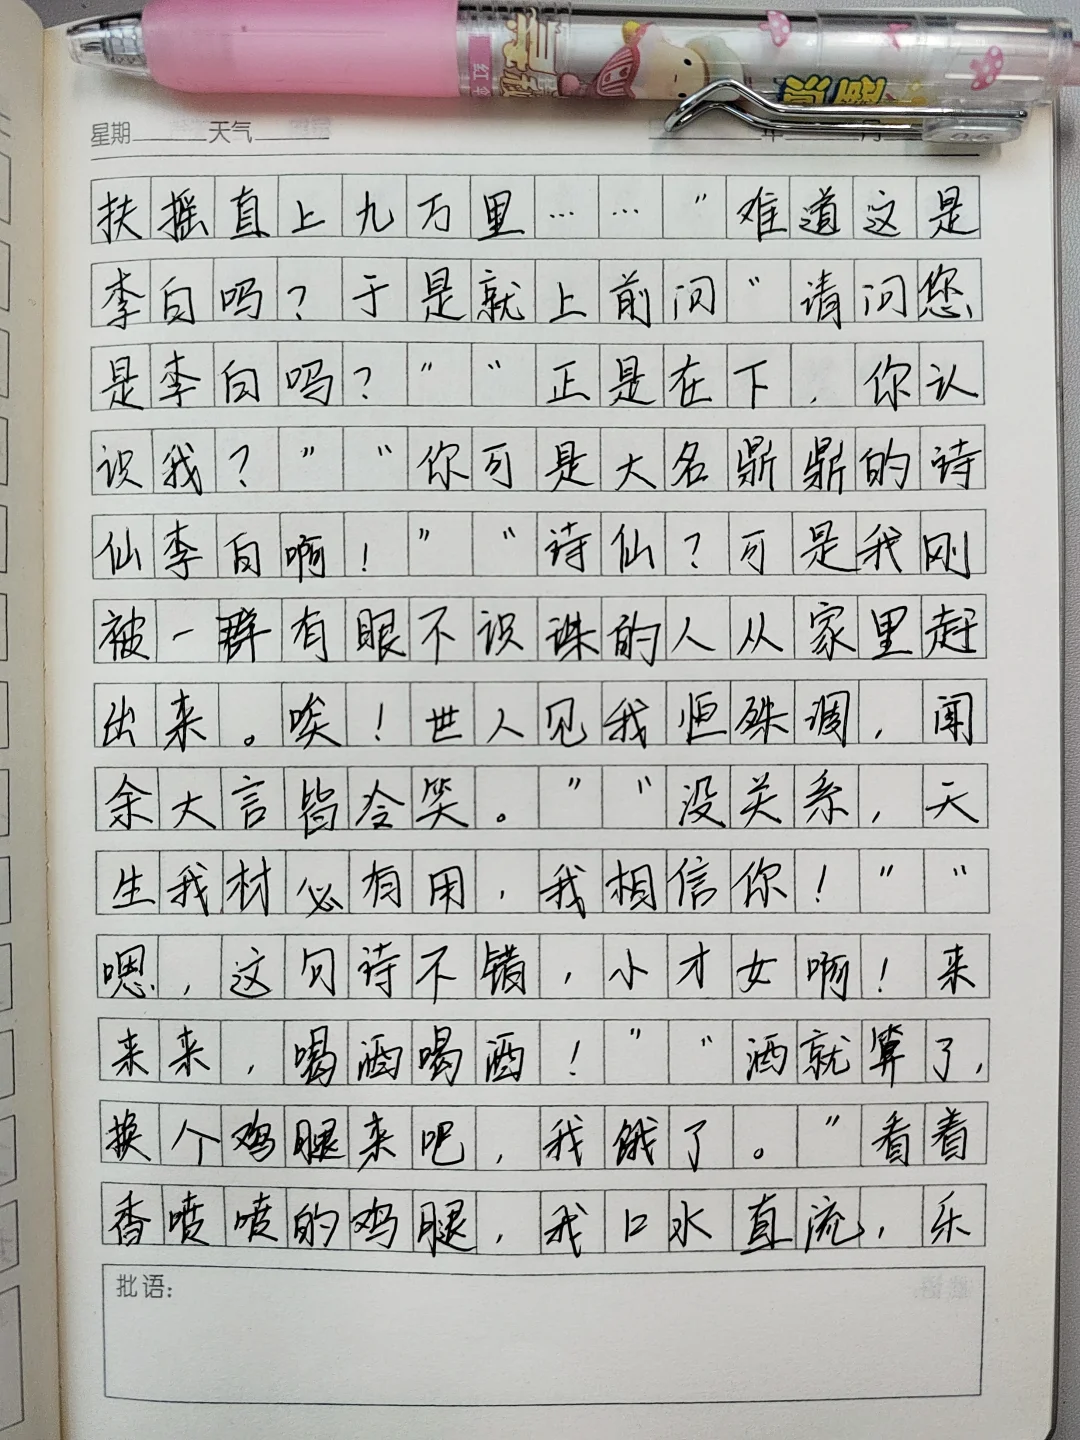 星期 天气 年 月
扶摇直上九万里……”难道这是
李白吗？于是就上前问“请问您
是李白吗？”“正是在下，你认
识我？”“你可是大名鼎鼎的诗
仙李白啊！”“诗仙？可是我刚
被一群有眼不识珠的人从家里赶
出来。唉！世人见我恒殊调，闻
余大言皆冷笑。”“没关系，天
生我材必有用，我相信你！”“
嗯，这句诗不错，小才女啊！来
来来，喝酒喝酒！”“酒就算了，
换个鸡腿来吧，我饿了。”看着
香喷喷的鸡腿，我口水直流，乐
批语：